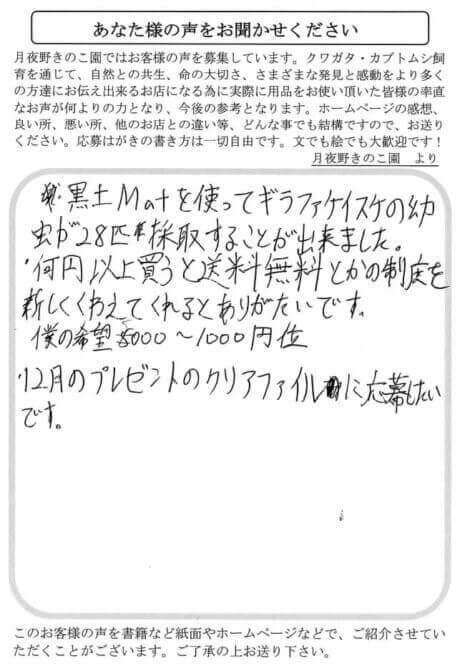 あなた様の声をお聞かせください
月夜野きのこ園ではお客様の声を募集しています。クワガタ・カブトムシ飼
育を通じて、自然との共生、命の大切さ、さまざまな発見と感動をより多く
の方達にお伝え出来るお店になる為に実際に用品をお使い頂いた皆様の率直
なお声が何よりの力となり、今後の参考となります。ホームページの感想、
良い所、悪い所、他のお店との違い等、どんな事でも結構ですので、お送り
ください。応募はがきの書き方は一切自由です。文でも絵でも大歓迎です！
月夜野きのこ園　より
黒土Matを使ってギラファケイスケの幼
虫が28匹採取することが出来ました。
・何円以上買うと送料無料とかの制度を
新しくくわえてくれるとありがたいです。
僕の希望 8000～1000円位
・12月のプレゼントのクリアファイルに応募したい
です。
このお客様の声を書籍など紙面やホームページなどで、ご紹介させてい
ただくことがございます。ご了承の上お送り下さい。